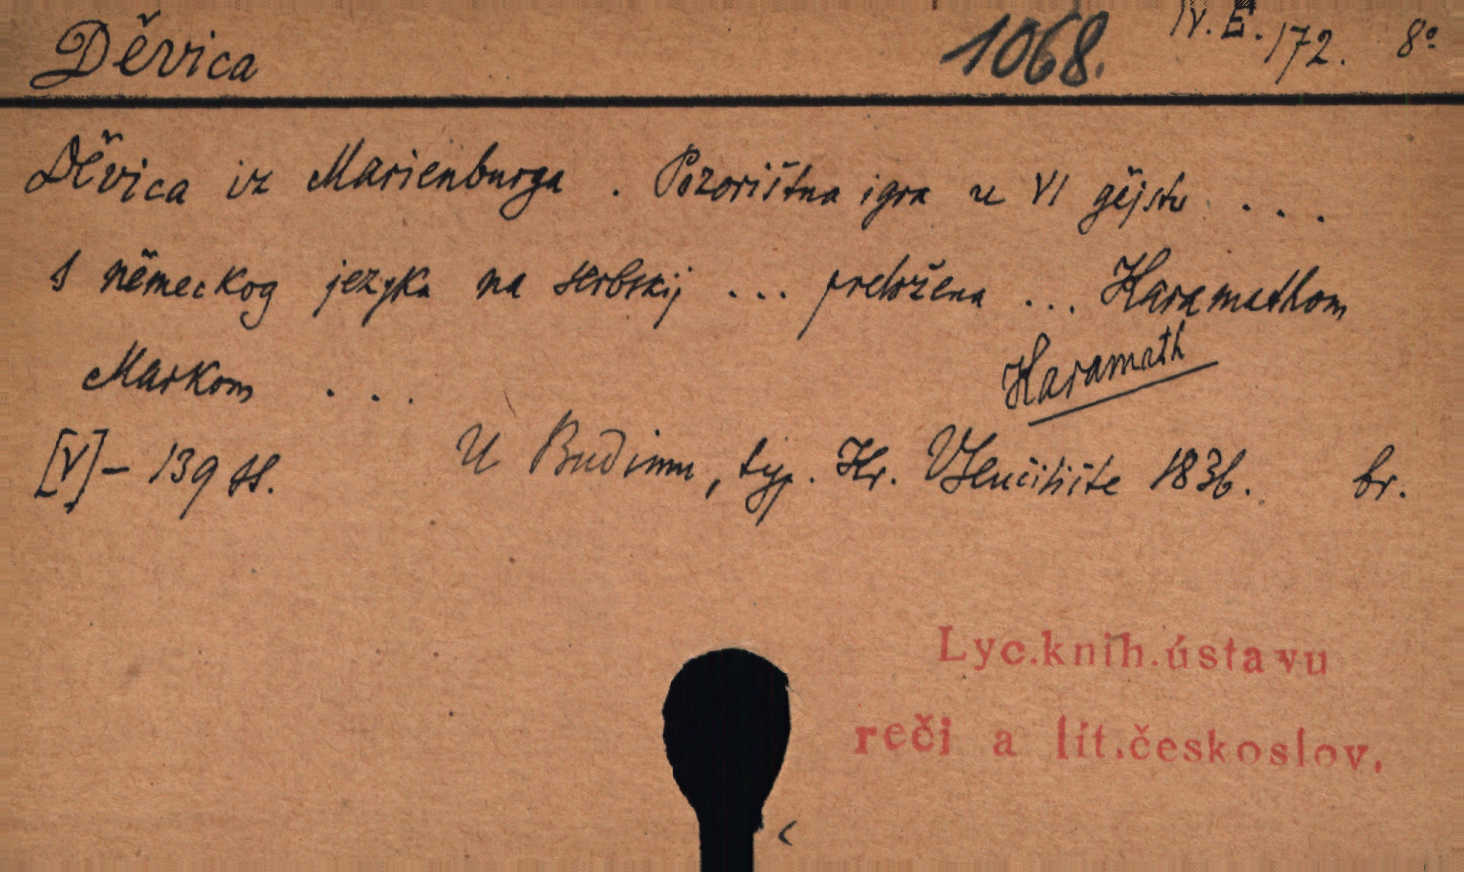 Děvica 1068. IV. E. 172. 8º
Děvica iz Marienburga . Pozorištna igra u VI gějstv ...
s německog jezyka na serbskij ... preložena ... Haramathom
Markom ...
Haramath
[V] – 139 ss. U Budimu, typ. Kr. Vseučilište 1836. br.
Lyc.knih.ústavu
reči a lit.českoslov.